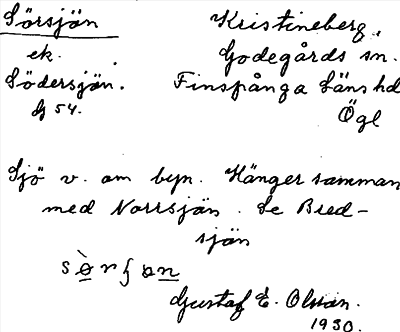 Sörsjön
Kristineberg,
ek.
Godegårds sn.
Södersjön.
Finspånga Läns hd
G 54.
Ögl
Sjö v. om byn. Hänger samman
med Norrsjön. Se Bred-
sjön
Gustaf E. Olsson.
1930.